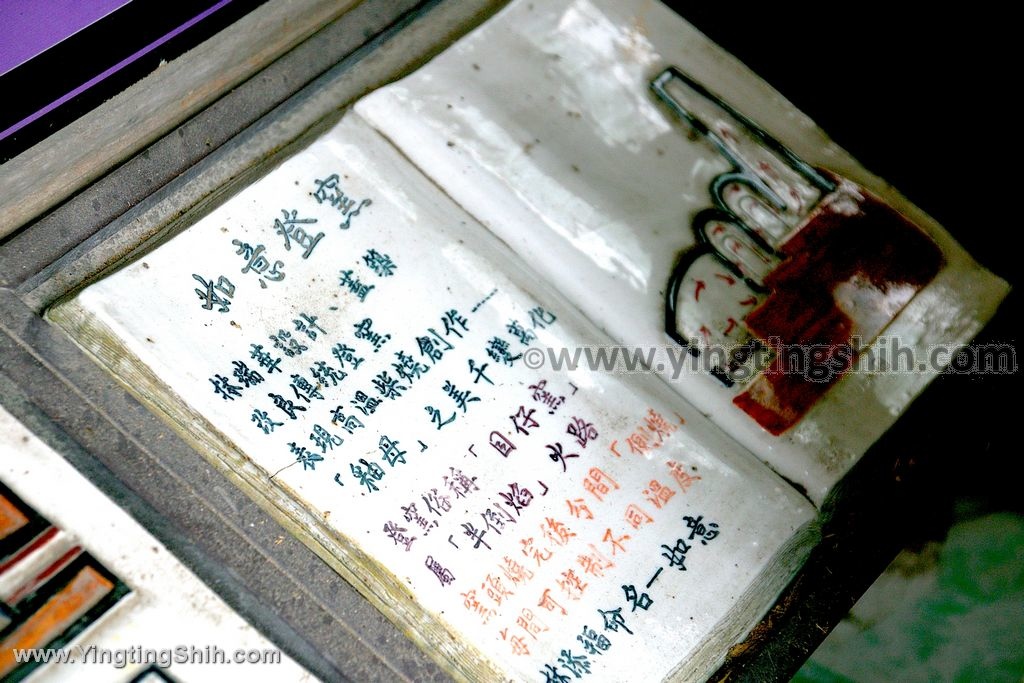 如意登窯
林瑞華設計、蓋築
改良傳統登窯
表現高溫柴燒創作……
「釉母」之美千變萬化
登窯俗稱「目仔窯」
屬「半倒焰」火路
窯頭燒完後分間「側燒」
每間可控制不同溫度
林添福命名—如意
©www.yingtingshih.com
www.YingtingShih.com